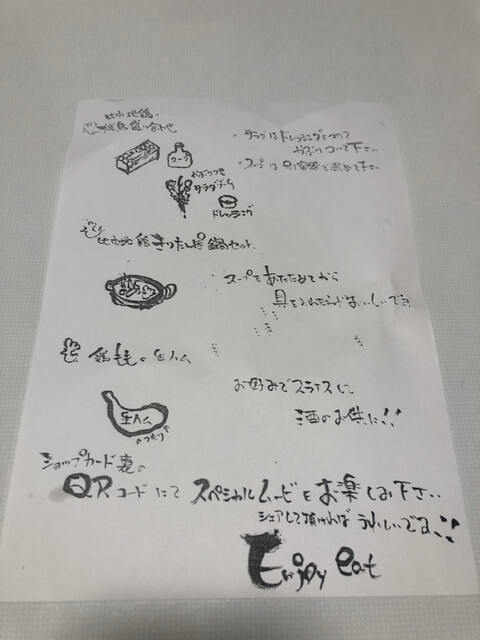 比内地鶏の
焼鳥盛り合わせ
スープ
かぶりつき
サラダ
ドレッシング
・サラダはドレッシングをつけて
かぶりついて下さい
・スープは別容器で温めて下さい
比内地鶏きりたんぽ鍋セット
スープをあたためてから
具を入れたらおいしいです
鶏ももの生ハム
生ハム
↑つもり↑
お好みでスライスして
酒のお供に!!
ショップカード裏の
QRコードにてスペシャルムービーをお楽しみ下さい
シェアして頂ければうれしいです!!
Enjoy eat